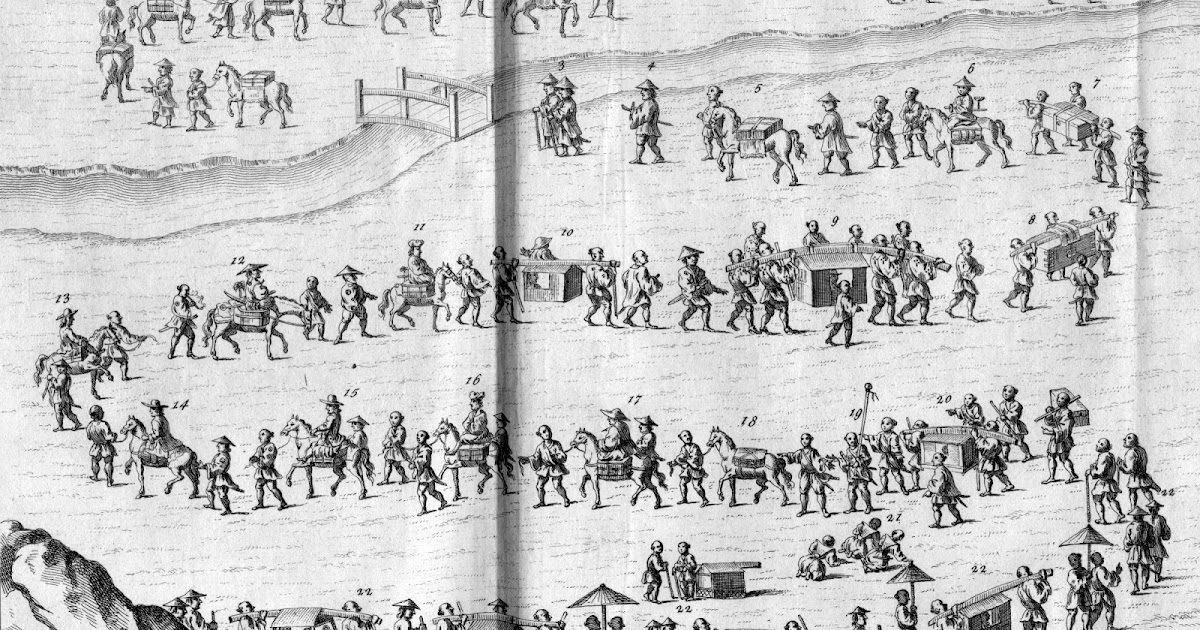 3
4
5
6
7
8
9
10
11
12
13
14
15
16
17
18
19
20
21
22
22
22
22